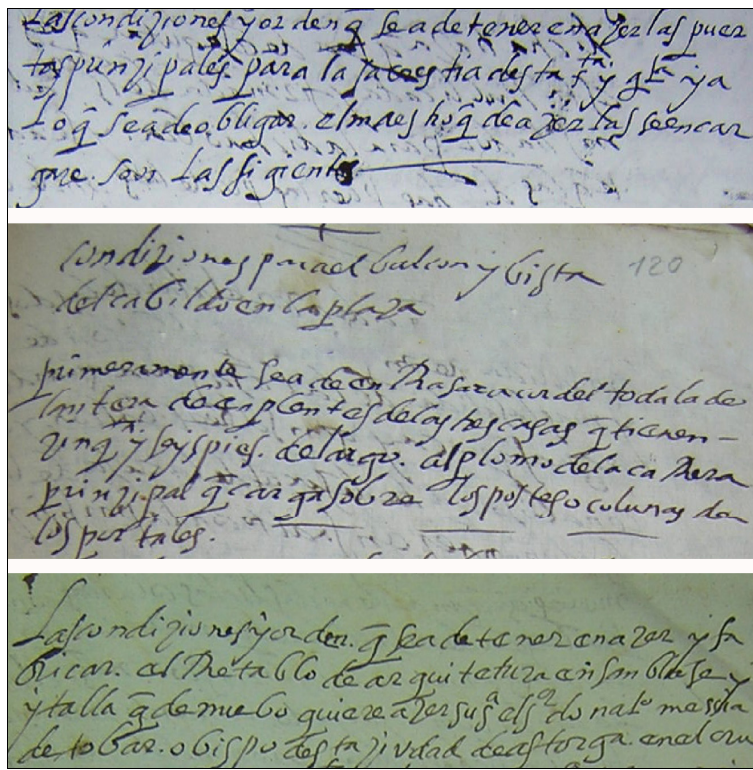 Las condiziones y orden q̄ se a de tener en azer las puer
tas prinzipales. para la sacrestia desta sta ygla y a
Lo q̄ se a de obligar. el maestro q̄ de azer las se encar
gare. son Las sigientes
condiziones para el balcon y bista 120
del cabildo en la plaza
primeramente se a de en Rasar a cordel toda la de
lantera de los tres casas q̄ tienen
zinqta y seys pies. de largo. al plomo de la ca Rera
prinzipal q̄ carga sobre los postes o colunas de
los portales.
Las condiziones y orden. q̄ se a de tener en azer y fa
bricar. el Retablo de arquitetura ensamblaje y
y talla q̄ de nuebo quiere azer su sa el sor do nato messia
de tobar. obispo desta ziudad de astorga. en el cru